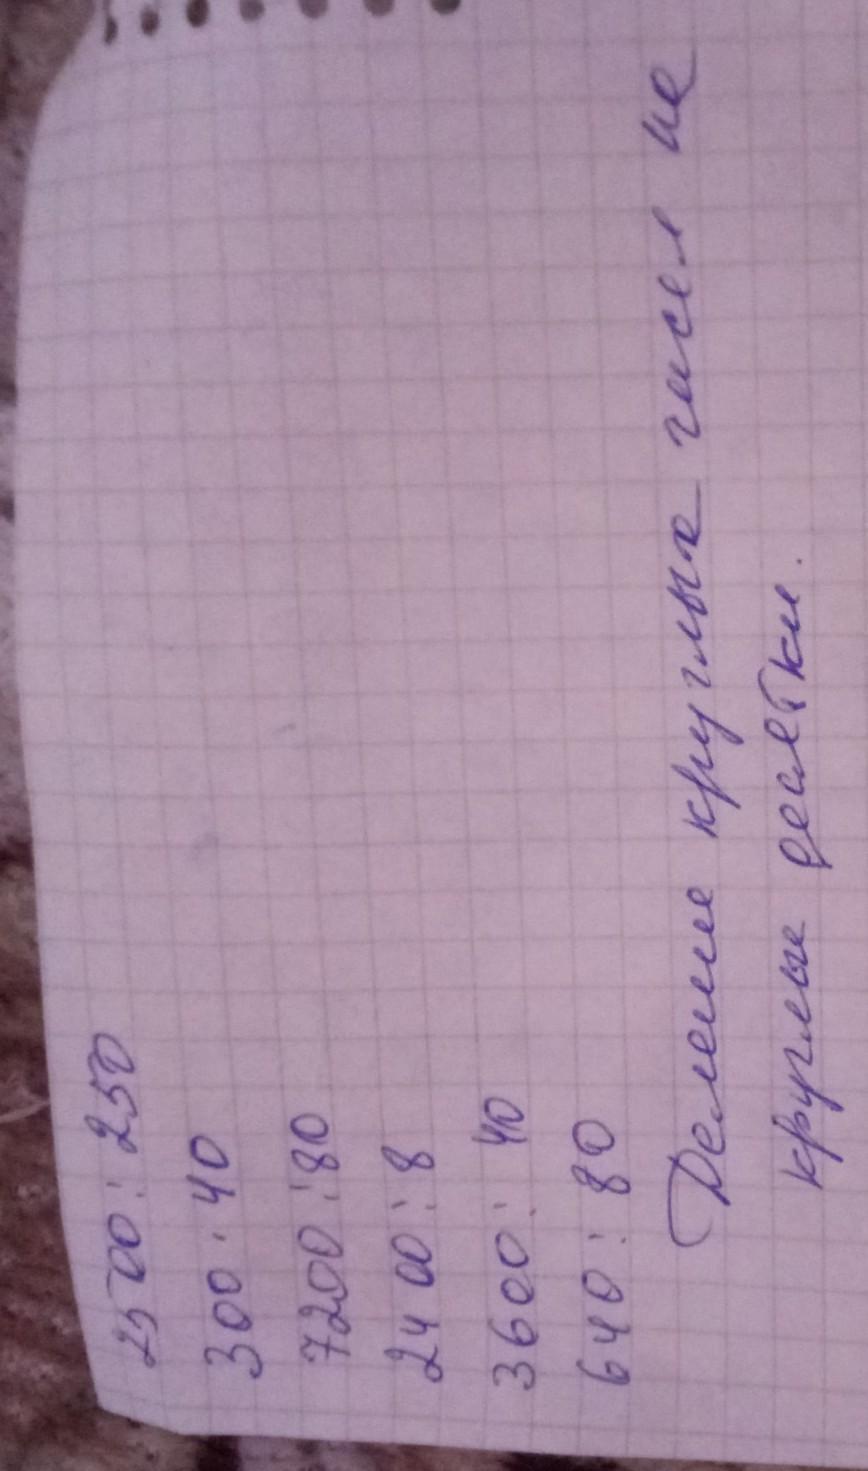 2500 : 250
300 · 40
7200 : 80
2400 : 8
3600 : 40
640 : 80
Деление круглых чисел на
круглые десятки.